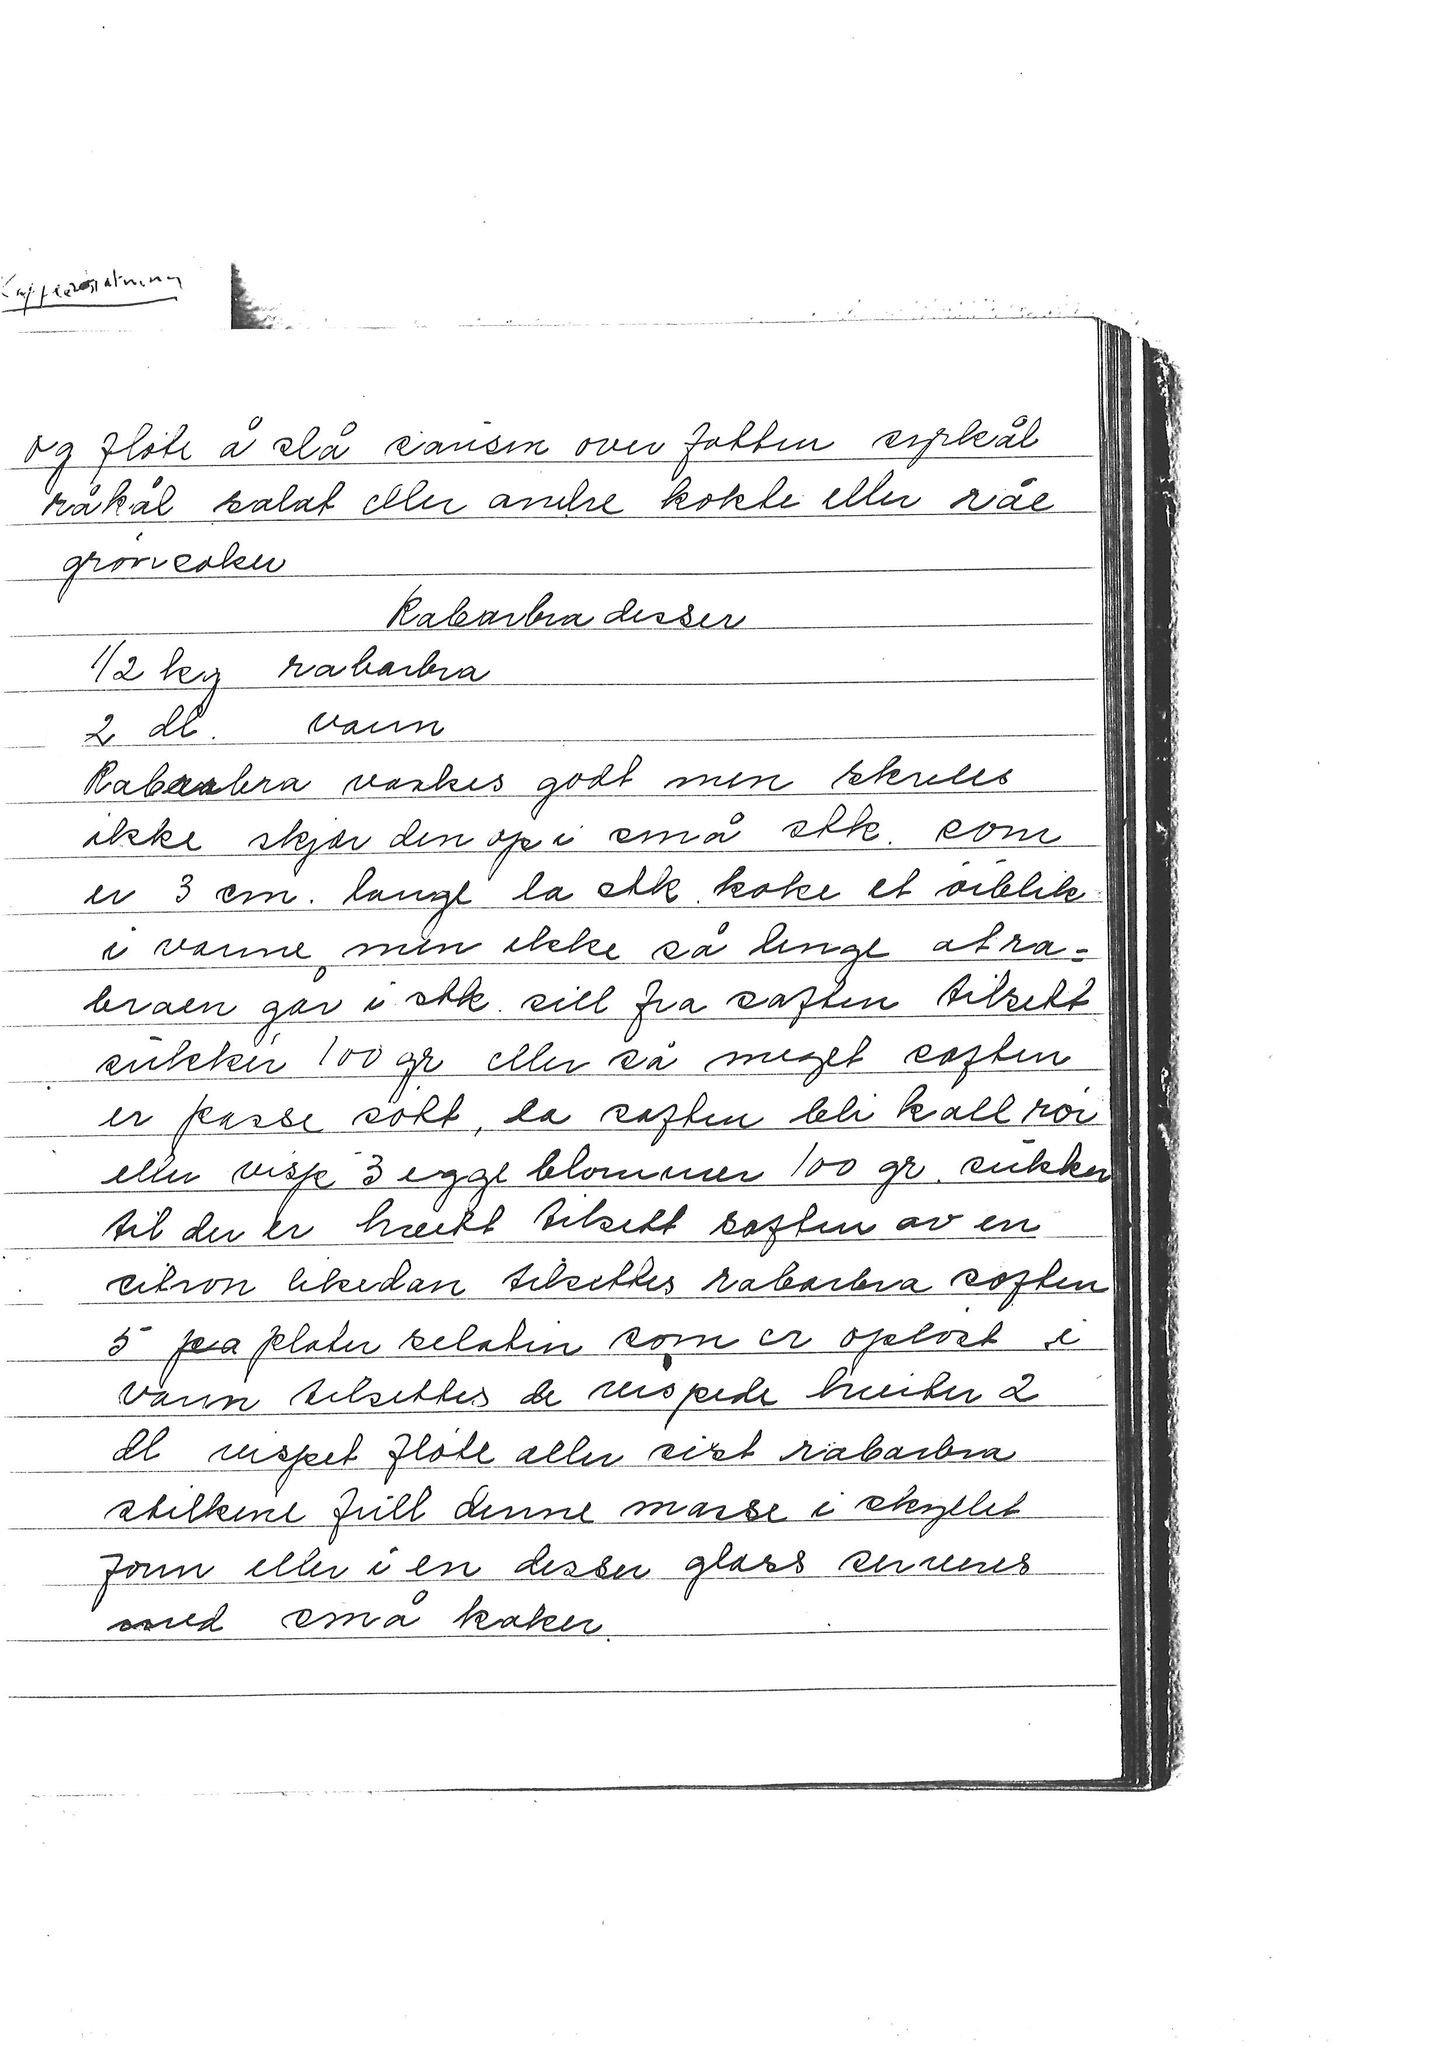 Kaffeerstatning
og fløte å slå sausen over fatten surkål
råkål salat eller andre kokte eller råe
grønsaker
Rabarbra desser
1/2 kg rabarbra
2 dl. vann
Rabarbra vaskes godt men skreles
ikke skjær den op i små stk. som
er 3 cm. lange la stk. koke et öiblik
i vanne men ikke så lenge at ra=
braen går i stk. sill fra saften tilsett
sukker 100 gr eller så meget saften
er passe søtt, la saften bli kall rör
eller visp 3 egge blommer 100 gr. sukker
til der er hveitt tilsett saften av en
sitron likedan tilsettes rabarbra saften
5 plater selatin som er opløst i
vann tilsettes de vispede hveiter 2
dl vispet fløte aller sist rabarbra
stilkene füll denne masse i skyllet
form eller i en desser glass serveres
med små kaker.